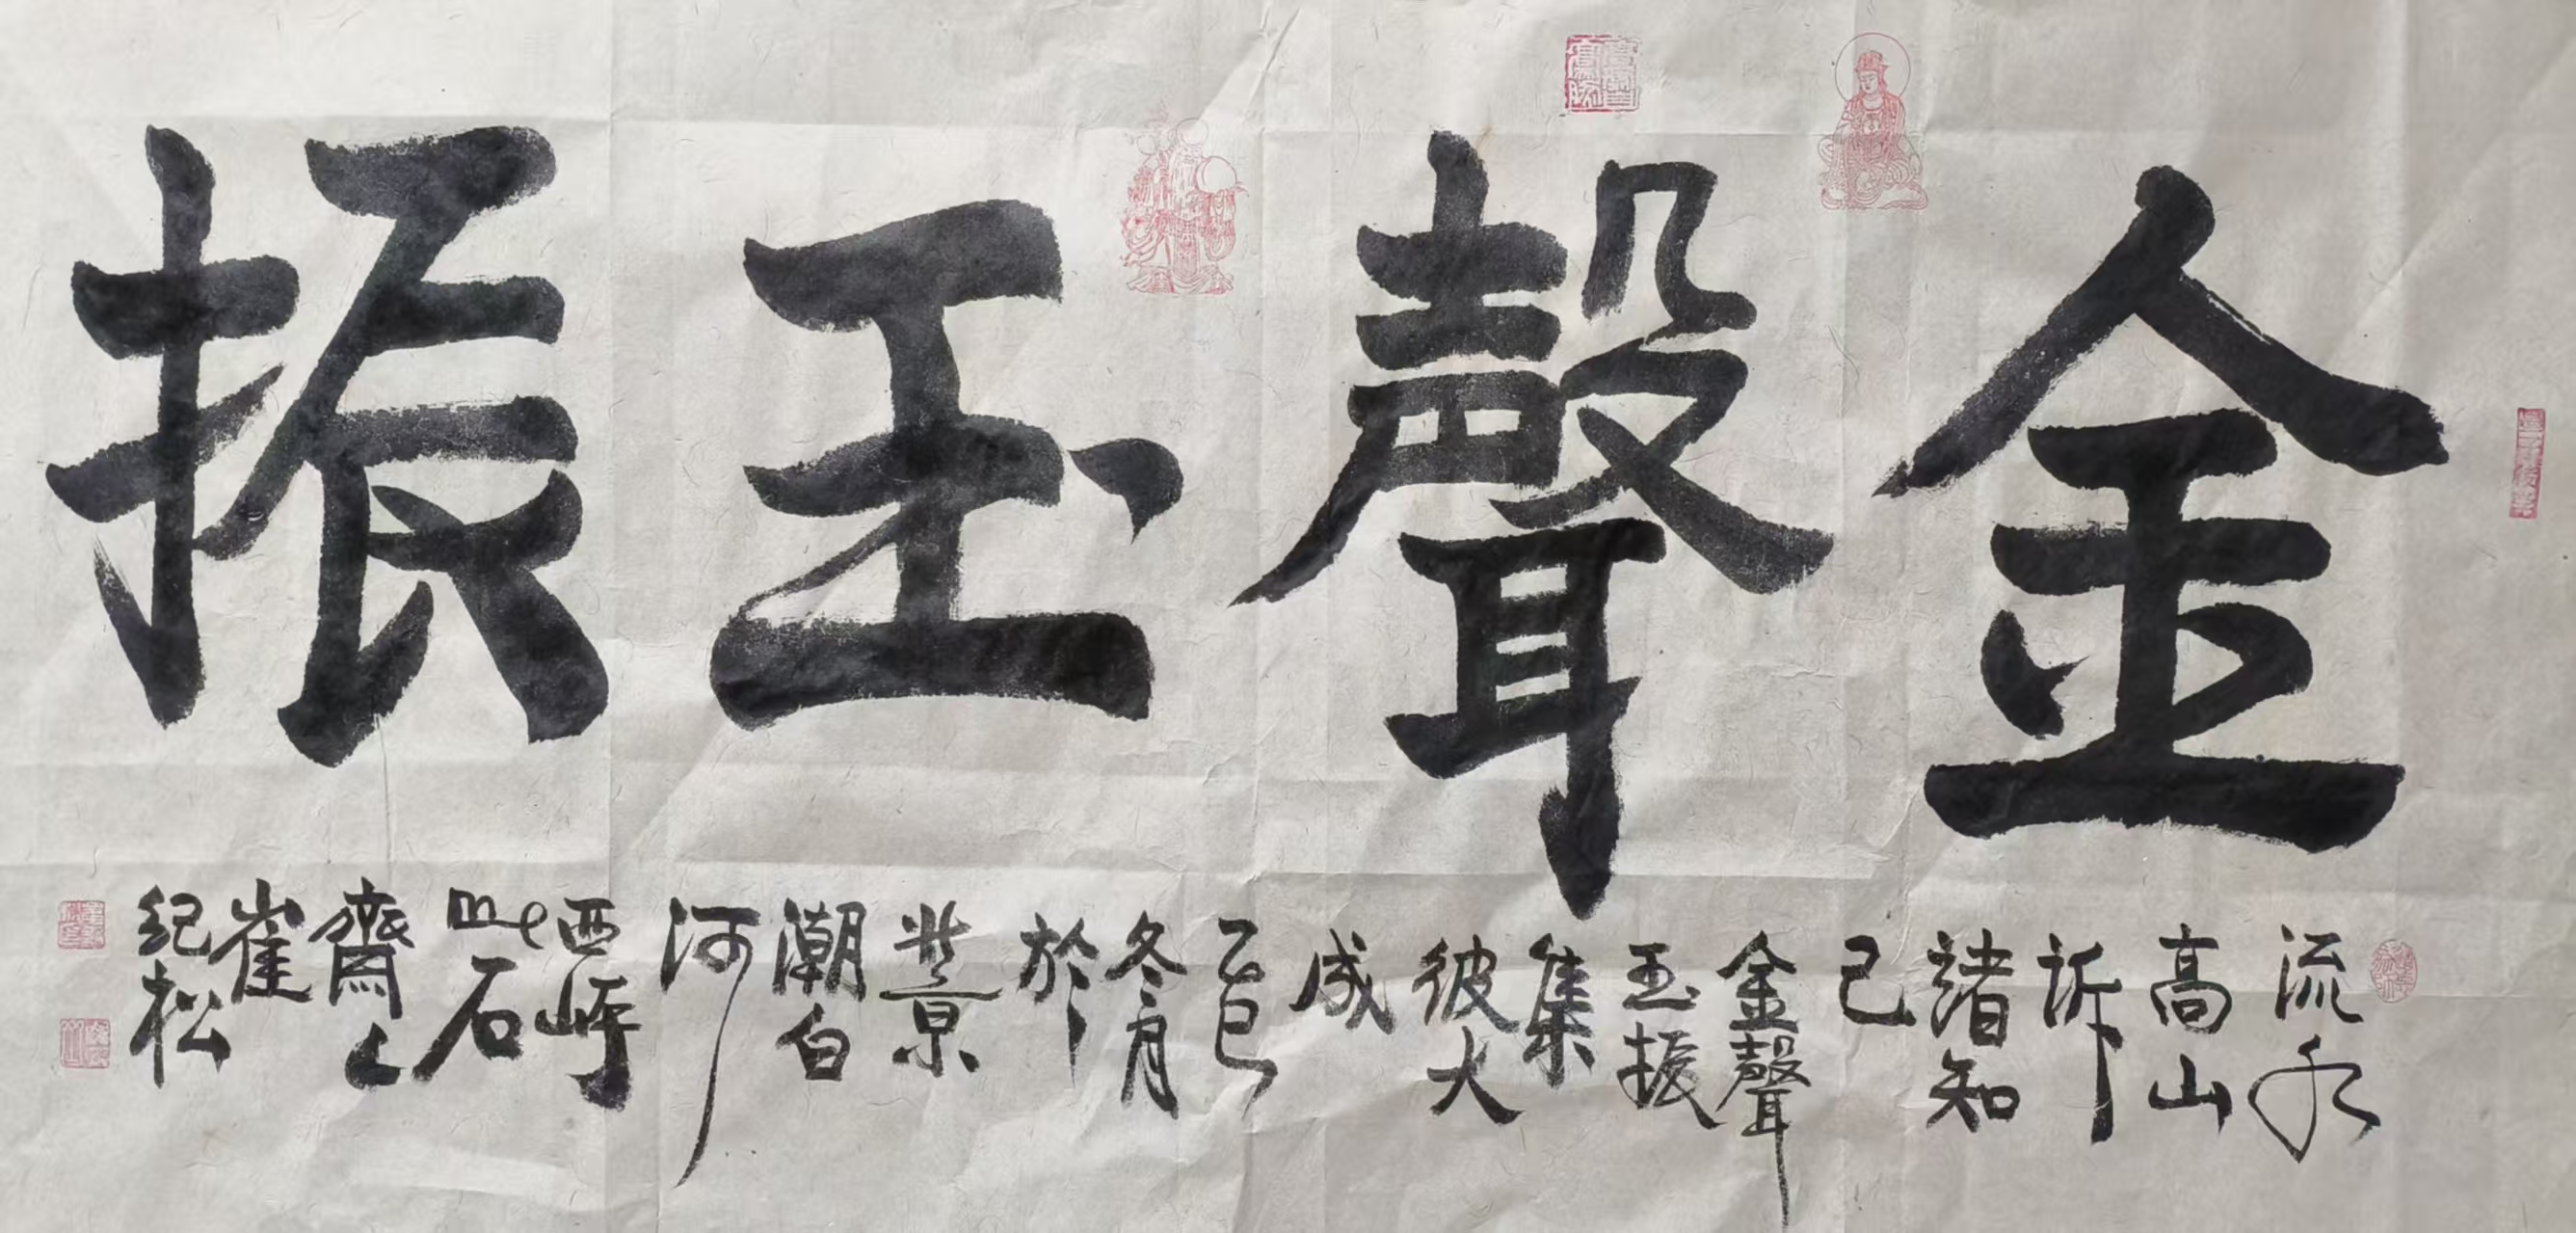 金聲玉振
流水
高山
訴
諸知
己
金聲
玉振
集
彼大
成
乙巳
冬月
於
北京
潮白
河
西岸
此石
齋
崔
紀松